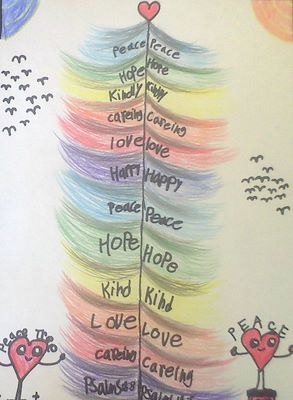 Peace Peace
Hope Hope
Kindly Kindly
careing careing
love love
Happy Happy
Peace Peace
HOPE HOPE
Kind Kind
LOVE LOVE
PEACE
careing careing
Psalms